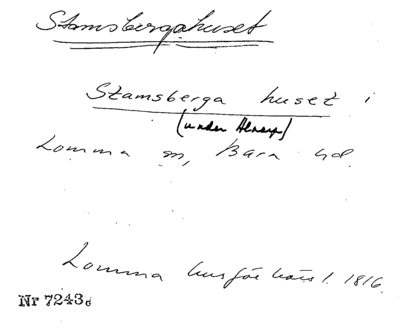 Stamsbergahuset
Stamsberga huset i
(under Alnarp)
Lomma sn, Bara hd
Lomma husförhörsl. 1816.
Nr 7243c